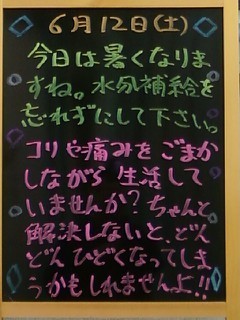 6月12日(土)
今日は暑くなりま
すね。水分補給を
忘れずにして下さいっ
コリや痛みをごまか
しながら生活して
いませんか？ちゃんと
解決しないと、どん
どんひどくなってしま
うかもしれませんよ!!